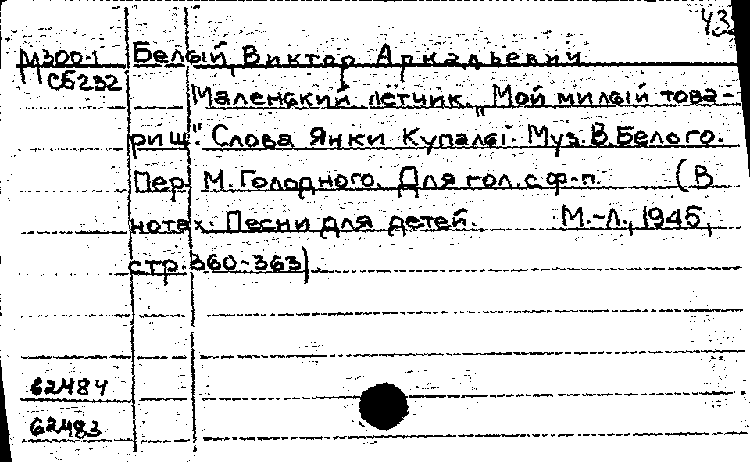 43
М300-1 Белый, Виктор Аркадьевич
Сб232
Маленький лётчик. "Мой милый това-
рищ". Слова Янки Купалы. Муз. В. Белого.
Пер. М. Голодного. Для гол. с ф-п. (В
нотах: Песни для детей. М.-Л., 1945,
стр. 360-363)
62484
62483